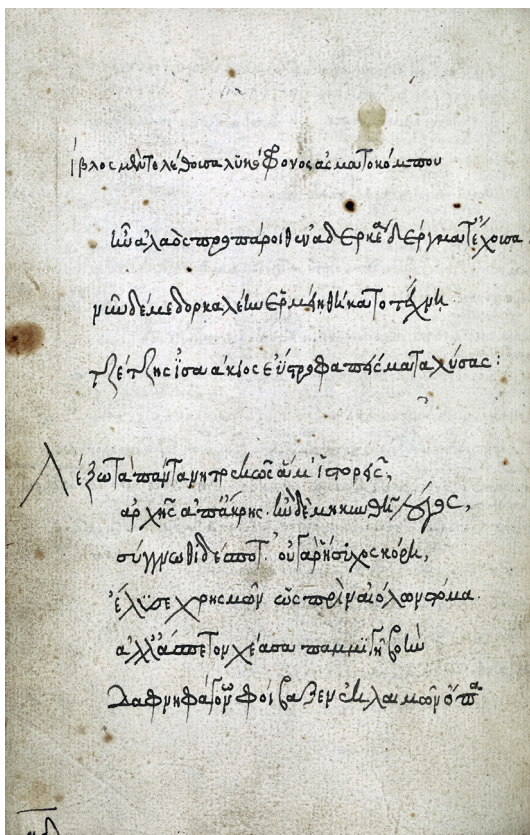 ίβλος μὲν τελέθουσα λυκόφρονος ἀσματοκόμπου
ἦν ἀλαὸς προπάροιθεν ἀδερκέα δέργματ' ἔχουσα
νῦν δέ με δορκαλέην ἑρμείη θήκατο τέχνη
τζέτζης ἰσαάκιος εὔστροφα πείσματα λύσας:
Λέξω τὰ πάντα νητρεκῶς ἅ μ' ἱστορεῖς,
ἀρχῆς ἀπ' ἄκρης. ἢν δὲ μηκυνθῇ λόγος,
σύγγνωθι δέσποτ'. οὐ γὰρ ἥσυχος κόρη,
ἔλυσε χρησμῶν ὡς πρὶν αἰόλον στόμα.
ἀλλ' ἄσπετον χέασα παμμιγῆ βοὴν
δαφνηφάγων φοίβαζεν ἐκ λαιμῶν ὄπα.